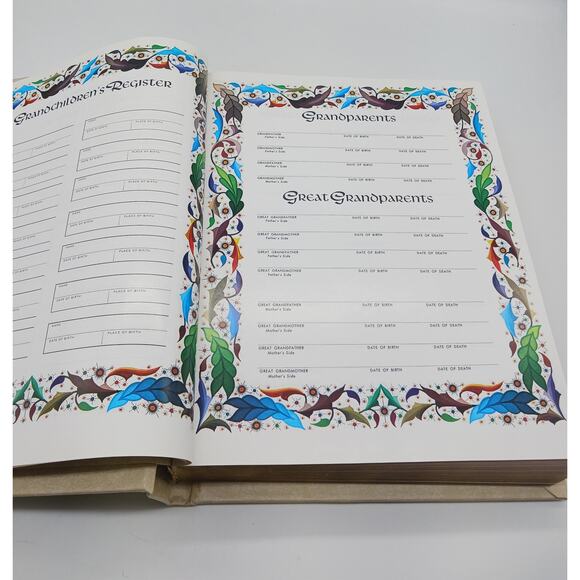 Grandchildren's Register
NAME
DATE OF BIRTH PLACE OF BIRTH
NAME
DATE OF BIRTH PLACE OF BIRTH
NAME
DATE OF BIRTH PLACE OF BIRTH
NAME
DATE OF BIRTH PLACE OF BIRTH
NAME
DATE OF BIRTH PLACE OF BIRTH
NAME
DATE OF BIRTH PLACE OF BIRTH
NAME
DATE OF BIRTH PLACE OF BIRTH
Grandparents
GRANDFATHER DATE OF BIRTH DATE OF DEATH
Father's Side
GRANDMOTHER DATE OF BIRTH DATE OF DEATH
Father's Side
GRANDFATHER DATE OF BIRTH DATE OF DEATH
Mother's Side
GRANDMOTHER DATE OF BIRTH DATE OF DEATH
Mother's Side
Great Grandparents
GREAT GRANDFATHER DATE OF BIRTH DATE OF DEATH
Father's Side
GREAT GRANDMOTHER DATE OF BIRTH DATE OF DEATH
Father's Side
GREAT GRANDFATHER DATE OF BIRTH DATE OF DEATH
Father's Side
GREAT GRANDMOTHER DATE OF BIRTH DATE OF DEATH
Father's Side
GREAT GRANDFATHER DATE OF BIRTH DATE OF DEATH
Mother's Side
GREAT GRANDMOTHER DATE OF BIRTH DATE OF DEATH
Mother's Side
GREAT GRANDFATHER DATE OF BIRTH DATE OF DEATH
Mother's Side
GREAT GRANDMOTHER DATE OF BIRTH DATE OF DEATH
Mother's Side